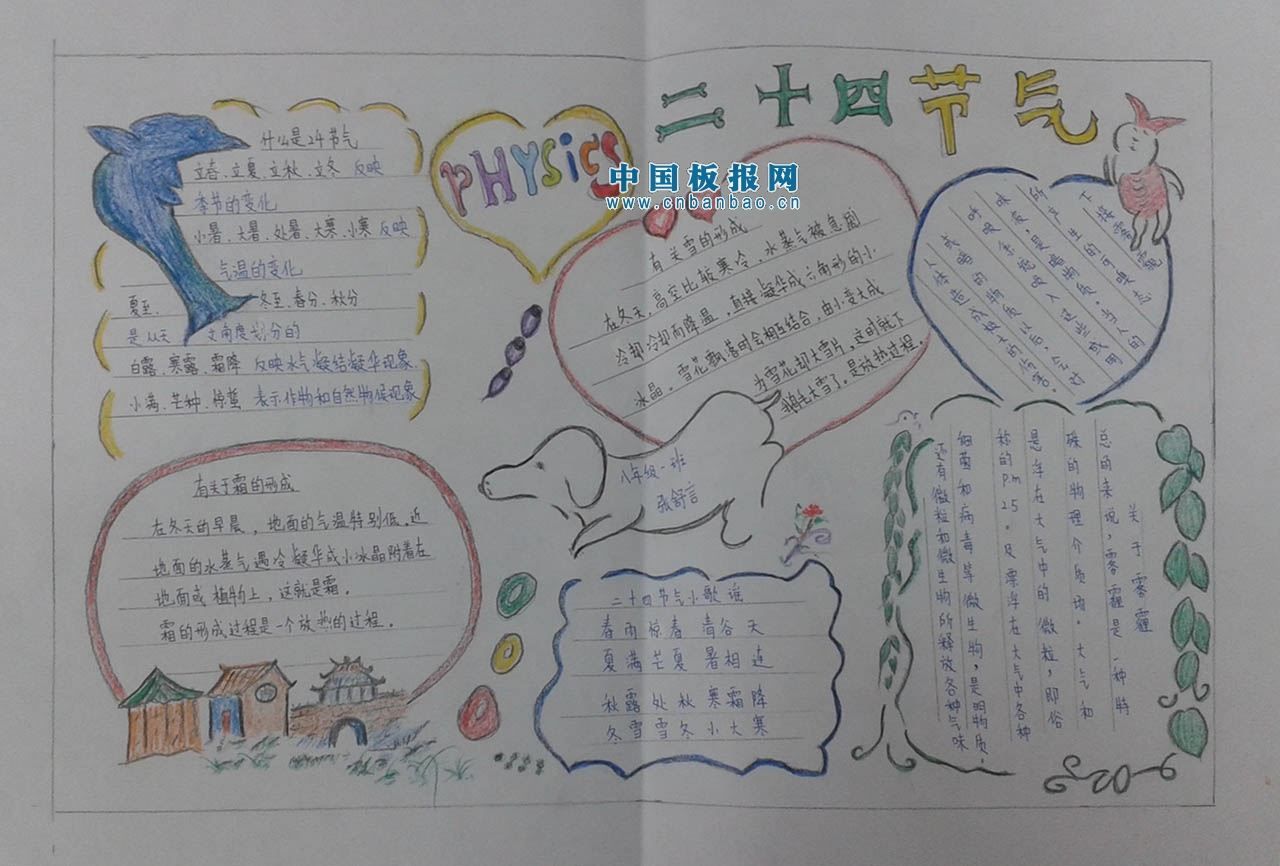 二十四节气
PHYSics
中国板报网
www.cnbanbao.cn
什么是24节气
立春、立夏、立秋、立冬 反映
季节的变化
小暑、大暑、处暑、大寒、小寒 反映
气温的变化
夏至、冬至、春分、秋分
是从天文角度划分的
白露、寒露、霜降 反映水气凝结凝华现象
小满、芒种、惊蛰 表示作物和自然物候现象
有关雪的形成
在冬天,高空比较寒冷,水蒸气被急剧
冷却冷却而降温,直接凝华成六角形的小
冰晶。雪花飘落时会相互结合,由小变大成
为雪花却大雪片,这时就下
鹅毛大雪了。是放热过程。
有关于霜的形成
在冬天的早晨,地面的气温特别低。近
地面的水蒸气遇冷凝华成小冰晶附着在
地面或植物上,这就是霜。
霜的形成过程是一个放热的过程。
八年级一班
张舒言
二十四节气小歌谣
春雨惊春 清谷天
夏满芒夏 暑相连
秋露处秋 寒霜降
冬雪雪冬 小大寒
关于雾霾
总的来说,雾霾是一种特
殊的物理介质场。大气和
是浮在大气中的微粒,即俗
称的pm25。及漂浮在大气中各种
细菌和病毒等微生物,是明物质。
还有微粒和微生物所释放各种气味
下接雾霾
所产生的可变态
味度,是暗物质。当人的
呼吸系统吸入这些或明
或暗的物质以后,会对
人体造成极大的伤害。